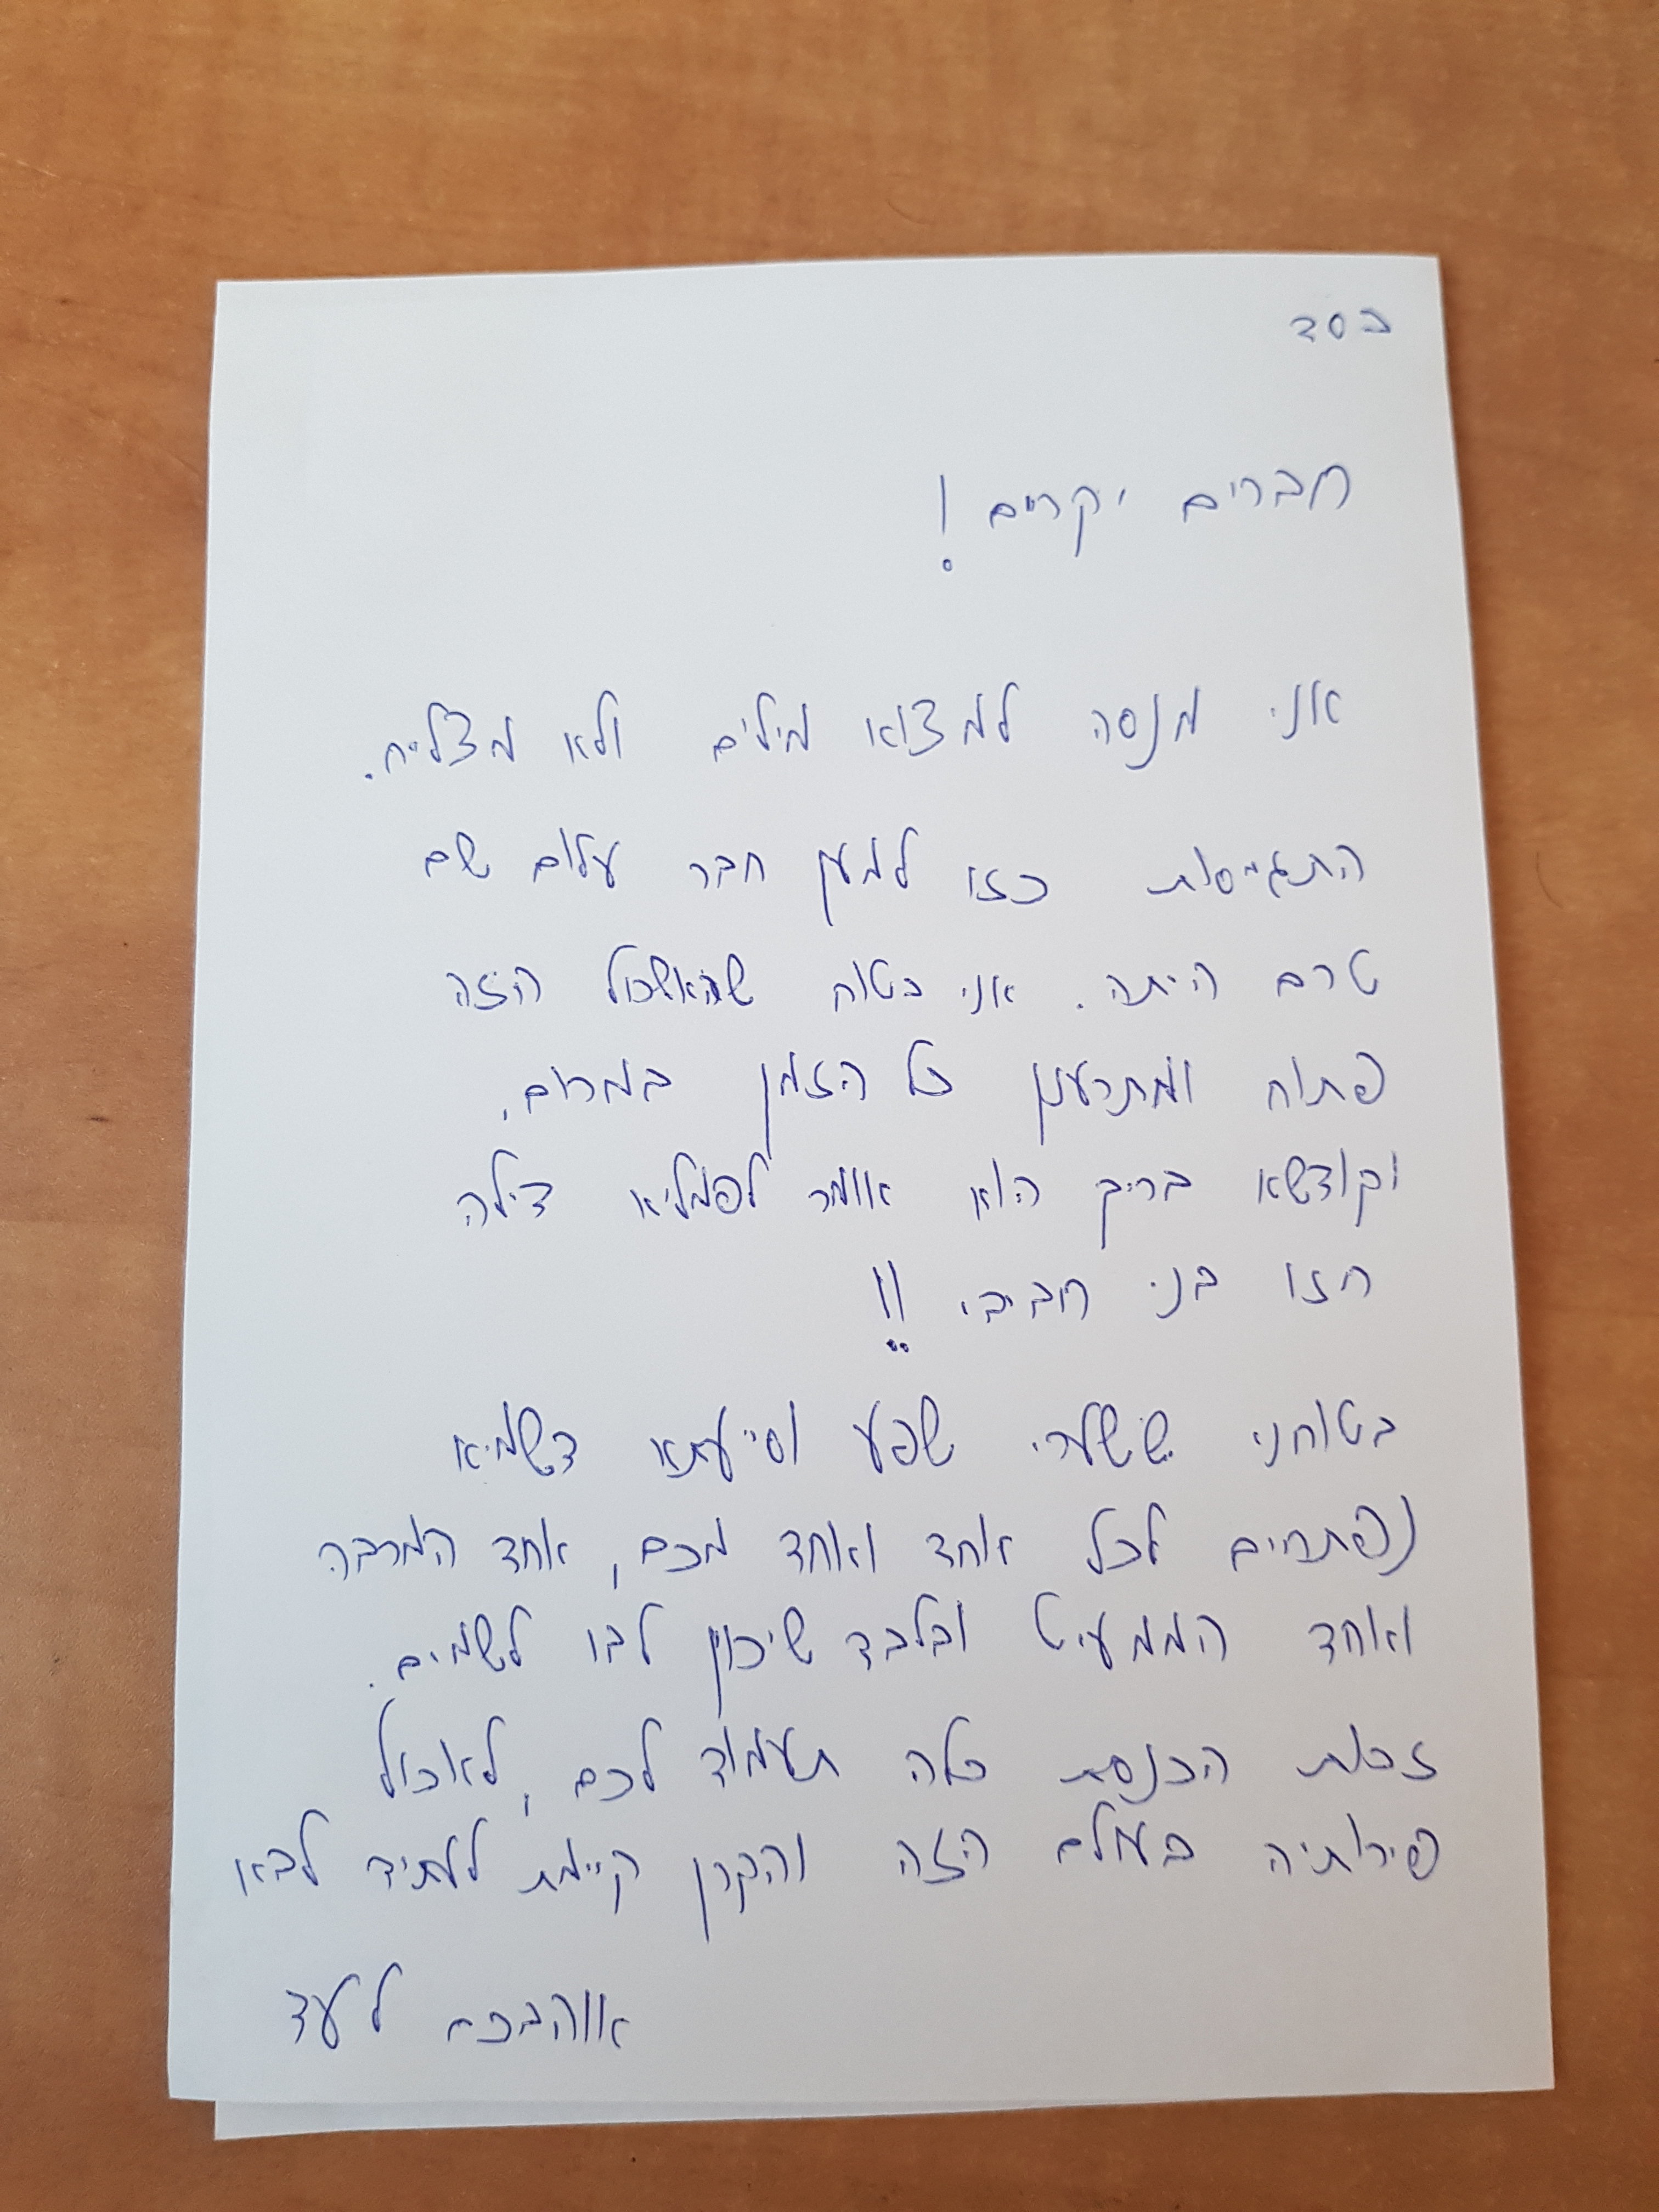 בסד
חברים יקרים!
אני מנסה למצוא מילים ולא מצליח.
התגייסות כזו למען חבר עלום שם
טרם היתה. אני בטוח שהאשכול הזה
פתוח ומתרענן כל הזמן במרום,
וקודשא בריך הוא אומר לפמליא דילה
חזו בני חביבי!!
בטוחני ששערי שפע וסייעתא דשמיא
נפתחים לכל אחד ואחד מכם, אחד המרבה
ואחד הממעיט ובלבד שיכוין לבו לשמים.
זכות הכנסת כלה תעמוד לכם, לאכול
פירותיה בעולם הזה והקרן קיימת לעתיד לבא
אוהבכם לעד